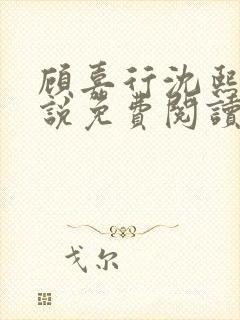 顾嘉行沈熙
說免費閱讀
戈尔